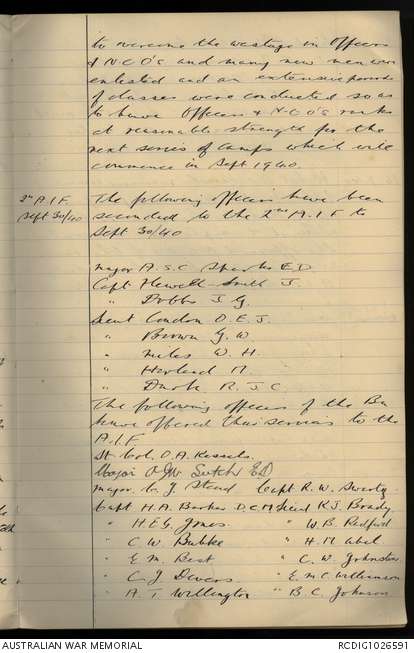 to overcome the wastage in Officers
& NCO's and many new men were
enlisted and an extensive period
of classes were conducted so as
to have Officers & NCO's ranks
at reasonable strength for the
next series of camps which will
commence in Sept 1940
2nd A.I.F.
Sept 30/40
The following officers have been
seconded to the 2nd A.I.F to
Sept 30/40
Major A.S.C Sparks E.D
Capt Hewell-Smith J.
" Dobbs J.G.
Lieut London O.E.J.
" Brown G.W
" Miles W.H.
" Harland M.
" R.J.C.
The following officers of the Bn
have offered their services to the
A.I.F
Lt Col. O.A. Kessels.
Major Sutch ED
Major C J Stead Capt R.W.
Capt H.A. Barker D.C.M Lieut K.J. Brady
" H.E.G. Jones " W.B. Redford
" C.W. Bubke " H.M Abel
" E.M. Best " C.W. Johnston
" C.J. Devers " E.M.C. Williamson
" A.T. Willington " B.C. Johnson
AUSTRALIAN WAR MEMORIAL
RCDIG1026591